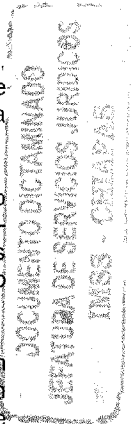 DOCUMENTO DICTAMINADO
JEFATURA DE SERVICIOS JURIDICOS
IMSS - CHIAPAS